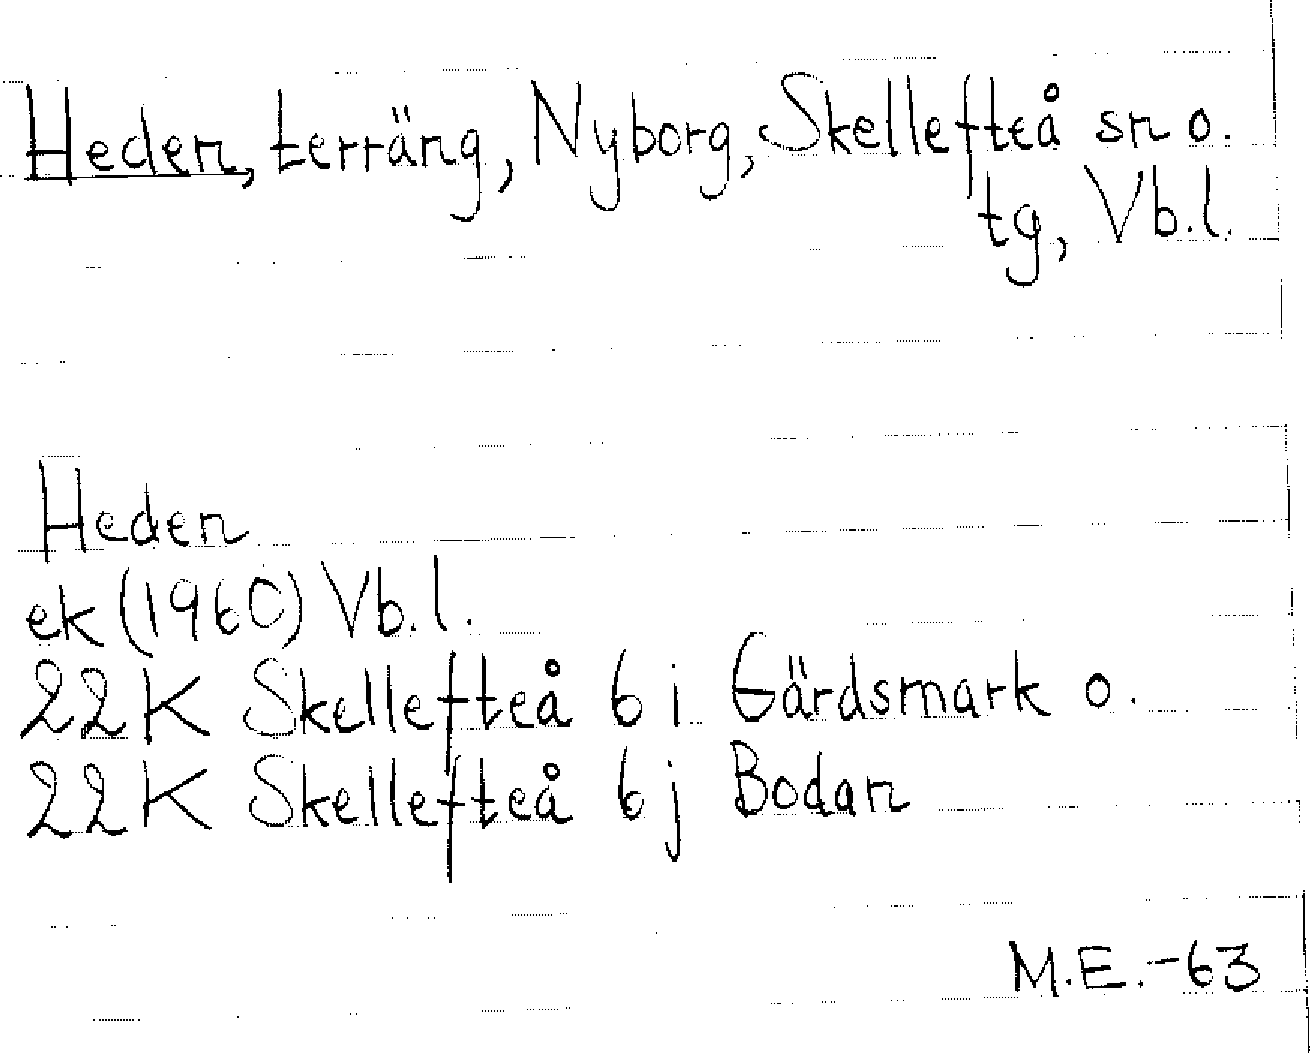 Heden, terräng, Nyborg, Skellefteå sn o.
tg, Vb.l.
Heden
ek (1960) Vb.l.
22K Skellefteå 6 i Gärdsmark o.
22K Skellefteå 6 j Bodan
M.E.-63